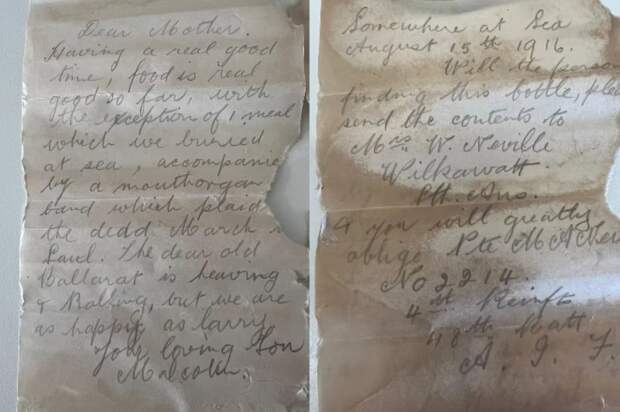 Dear Mother.
Having a real good
time, food is real
good so far, with
the exception of 1 meal
which we buried
at sea, accompanie
by a mouthorgan
band which plaid
the dead March
Saul. The dear old
Ballarat is heaving
& Rolling, but we are
as happy as larry
Your loving Son
Malcolm.
Somewhere at Sea
August 15th 1916.
Will the person
finding this bottle, ple
send the contents to
Mrs W. Neville
Wilkawatt
Sth. Aus.
& you will greatly
oblige Pte M A Nev
No 2214.
4th Reinft
48th Batt
A. I. F.